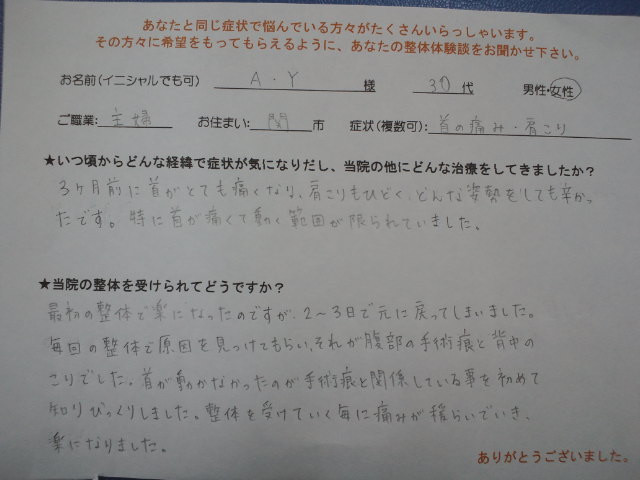 あなたと同じ症状で悩んでいる方々がたくさんいらっしゃいます。
その方々に希望をもってもらえるように、あなたの整体体験談をお聞かせ下さい。
お名前(イニシャルでも可) A・Y 様 30代 男性・女性
ご職業: 主婦 お住まい: 関 市 症状(複数可): 首の痛み・肩こり
★いつ頃からどんな経緯で症状が気になりだし、当院の他にどんな治療をしてきましたか?
3ヶ月前に首がとても痛くなり、肩こりもひどく、どんな姿勢をしても辛かっ
たです。特に首が痛くて動く範囲が限られていました。
★当院の整体を受けられてどうですか?
最初の整体で楽になったのですが、2~3日で元に戻ってしまいました。
毎回の整体で原因を見つけてもらい、それが腹部の手術痕と背中の
こりでした。首が動かなかったのが手術痕と関係している事を初めて
知りびっくりしました。整体を受けていく毎に痛みが和らいでいき、
楽になりました。
ありがとうございました。